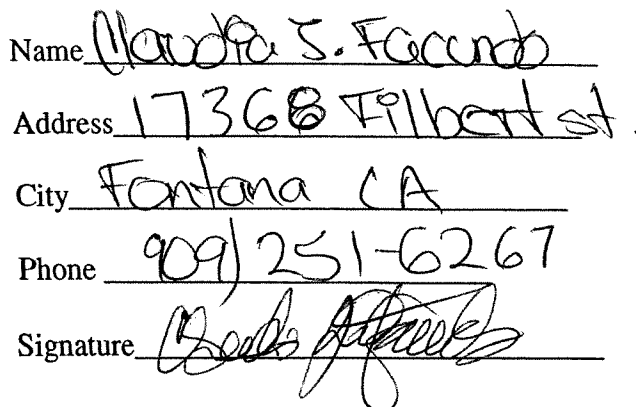 Name Claudia J. Facundo
Address 17368 Filbert st.
City Fontana CA
Phone 909) 251-6267
Signature